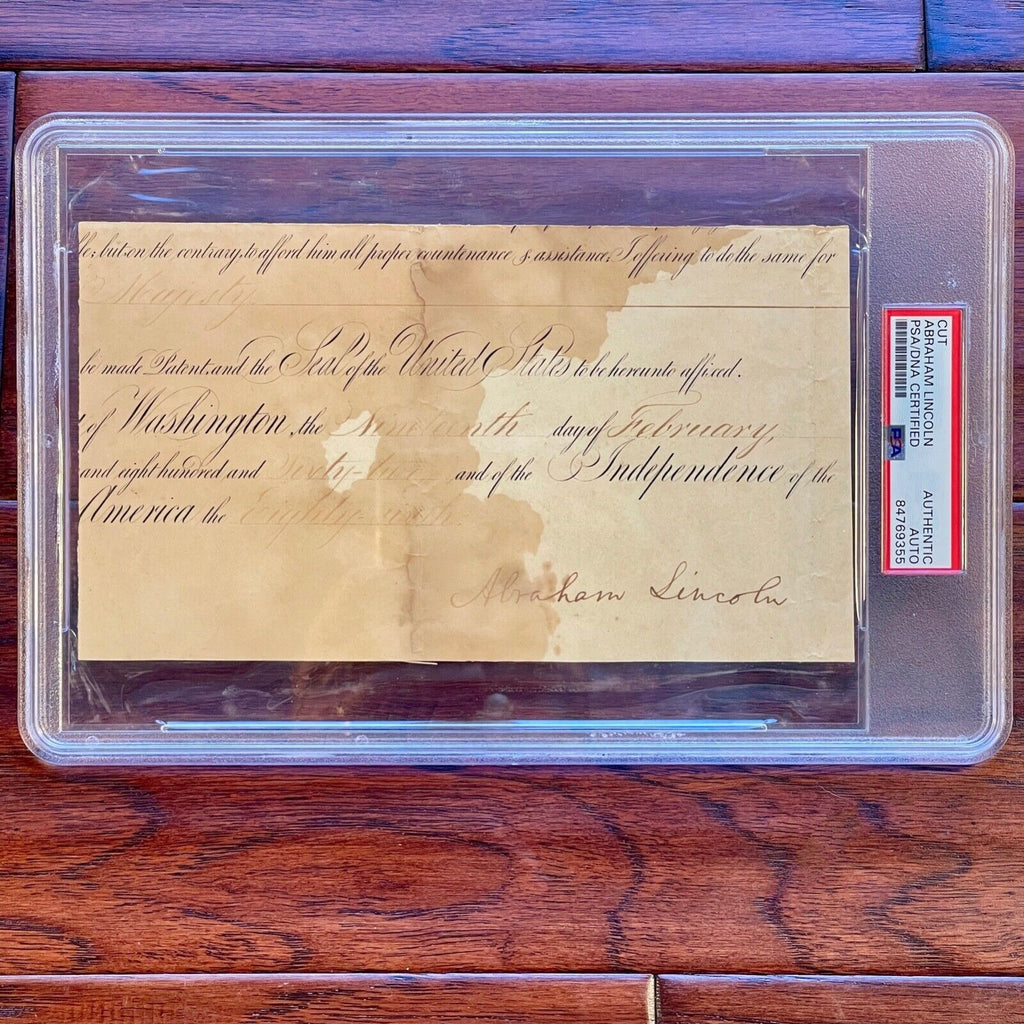 but on the contrary, to afford him all proper countenance & assistance, I offering to do the same for
Majesty.
be made Patent, and the Seal of the United States to be hereunto affixed.
of Washington, the Nineteenth day of February,
and eight hundred and Sixty-two, and of the Independence of the
America the Eighty-sixth.
Abraham Lincoln
CUT
ABRAHAM LINCOLN
PSA/DNA CERTIFIED
PSA
AUTHENTIC
AUTO
84769355